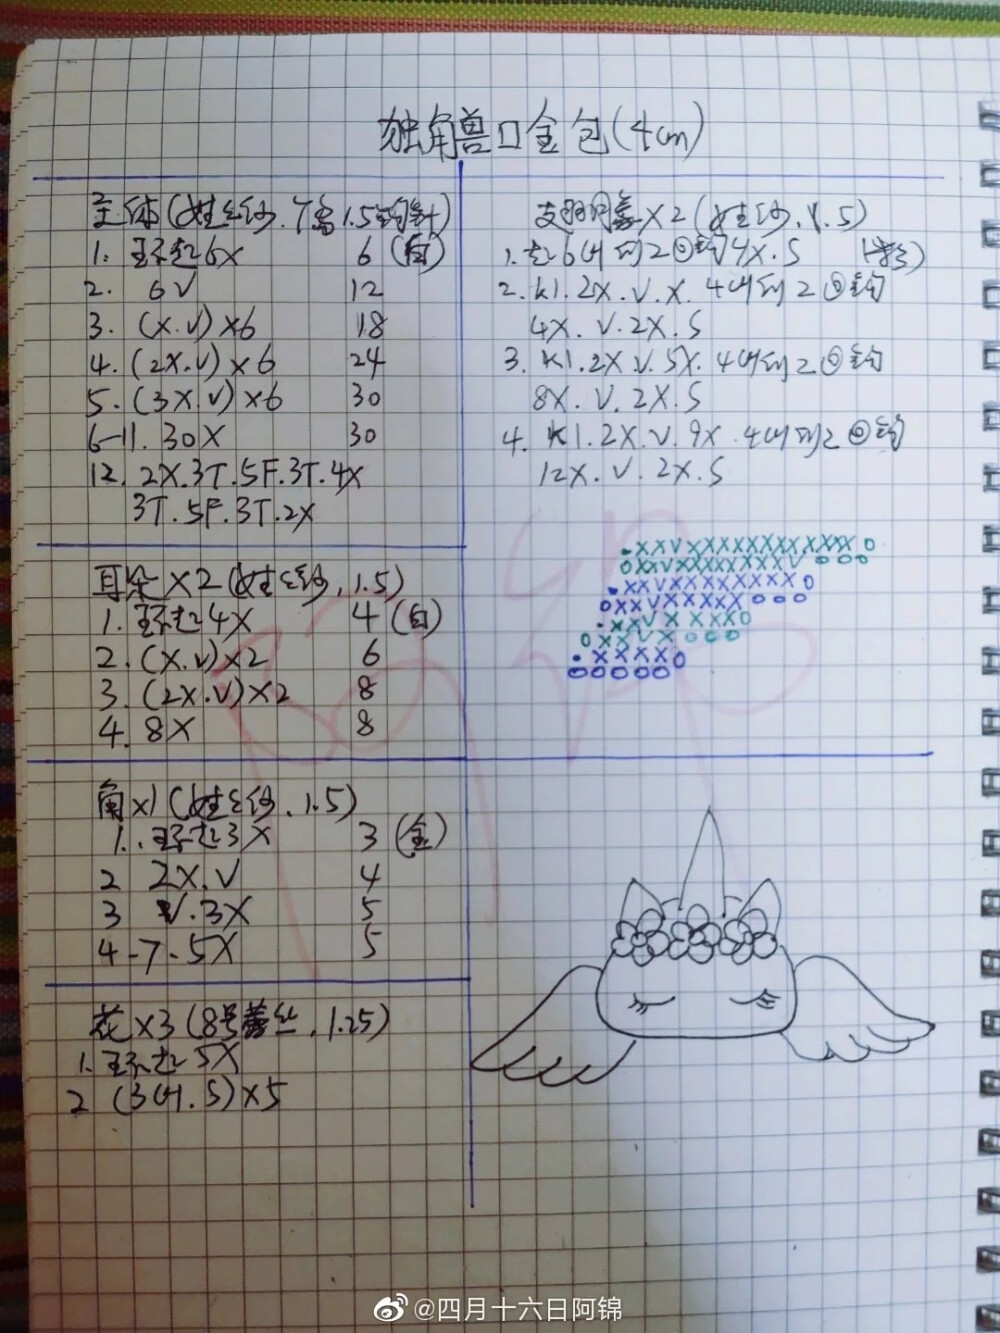 独角兽口金包(4cm)
主体(姓纱.可富1.5钩针)
1. 环起6X 6 (白)
2. 6V 12
3. (X.V)×6 18
4. (2X.V)×6 24
5. (3X.V)×6 30
6-11. 30X 30
12. 2X.3T.5F.3T.4X
3T.5F.3T.2X
耳朵×2(,1.5)
1. 环起4X 4 (白)
2. (X.V)×2 6
3. (2X.V)×2 8
4. 8X 8
角×1(,1.5)
1. 环起3X 3 (金)
2 2X.V 4
3 V.3X 5
4-7. 5X 5
花×3(8号蕾丝,1.25)
1. 环起5X
2 (3CH.S)×5
翅膀×2(,1.5)
1. 起6CH 到2 钩4X.S
2. K1.2X.V.X. 4CH到2 钩
4X.V.2X.S
3. K1.2X.V.5X. 4CH到2 钩
8X.V.2X.S
4. K1.2X.V.9X. 4CH到2 钩
12X.V.2X.S
@四月十六日阿锦